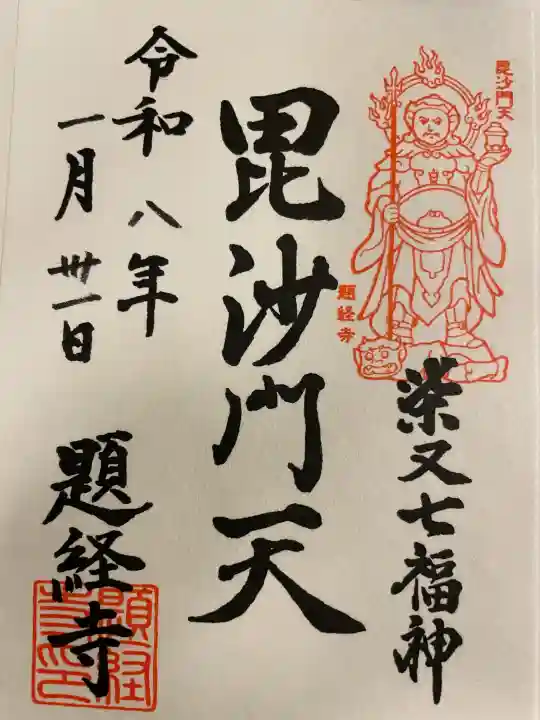 毘沙門天
題経寺
柴又七福神
毘沙門天
令和八年
一月卅一日
題経寺
題経寺